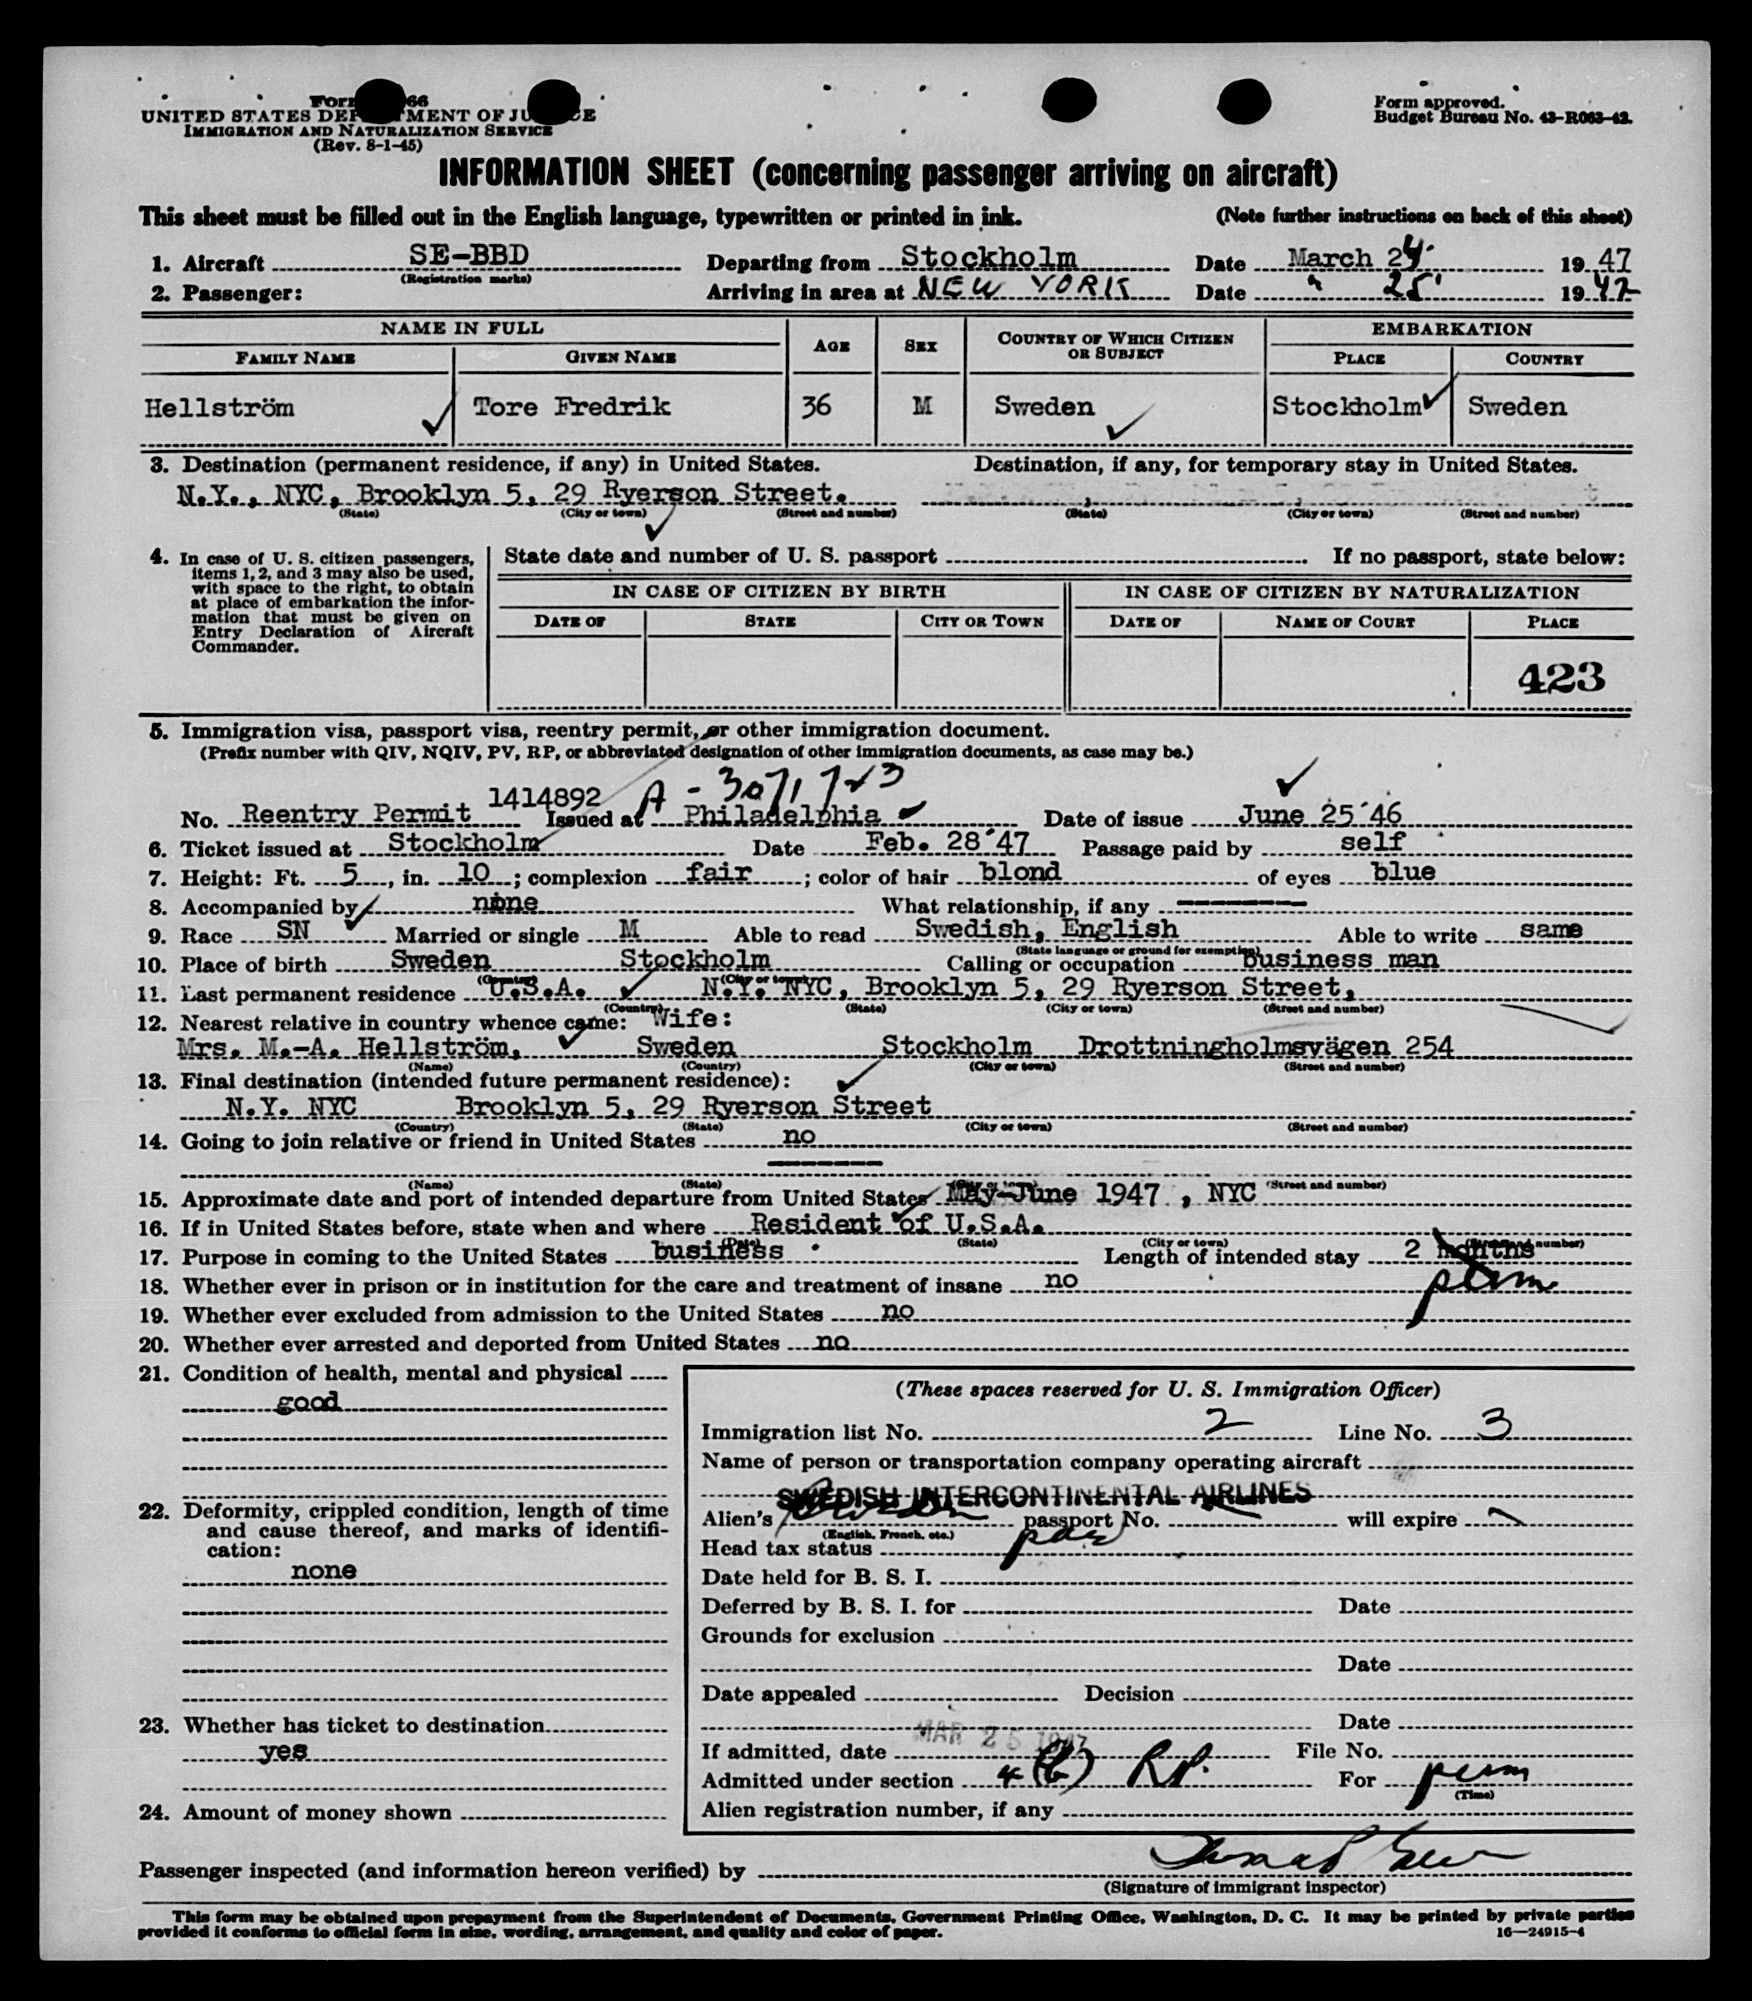 Form 66
UNITED STATES DEPARTMENT OF JUSTICE
IMMIGRATION AND NATURALIZATION SERVICE
(Rev. 8-1-45)
Form approved.
Budget Bureau No. 43-R063-42.
INFORMATION SHEET (concerning passenger arriving on aircraft)
This sheet must be filled out in the English language, typewritten or printed in ink. (Note further instructions on back of this sheet)
1. Aircraft SE-BBD Departing from Stockholm Date March 24. 1947
(Registration marks)
2. Passenger: Arriving in area at NEW YORK Date " 25' 1947
NAME IN FULL AGE SEX COUNTRY OF WHICH CITIZEN OR SUBJECT EMBARKATION
FAMILY NAME GIVEN NAME PLACE COUNTRY
Hellström Tore Fredrik 36 M Sweden Stockholm Sweden
3. Destination (permanent residence, if any) in United States. Destination, if any, for temporary stay in United States.
N.Y., NYC, Brooklyn 5, 29 Ryerson Street.
(State) (City or town) (Street and number) (State) (City or town) (Street and number)
4. In case of U. S. citizen passengers, items 1, 2, and 3 may also be used, with space to the right, to obtain at place of embarkation the information that must be given on Entry Declaration of Aircraft Commander.
State date and number of U. S. passport If no passport, state below:
IN CASE OF CITIZEN BY BIRTH IN CASE OF CITIZEN BY NATURALIZATION
DATE OF STATE CITY OR TOWN DATE OF NAME OF COURT PLACE
423
5. Immigration visa, passport visa, reentry permit, or other immigration document.
(Prefix number with QIV, NQIV, PV, RP, or abbreviated designation of other immigration documents, as case may be.)
A - 3071723
No. Reentry Permit 1414892 Issued at Philadelphia Date of issue June 25´46
6. Ticket issued at Stockholm Date Feb. 28´47 Passage paid by self
7. Height: Ft. 5, in. 10; complexion fair; color of hair blond of eyes blue
8. Accompanied by none What relationship, if any
9. Race SN Married or single M Able to read Swedish, English Able to write same
(State language or ground for exemption)
10. Place of birth Sweden Stockholm Calling or occupation business man
(Country) (City or town)
11. Last permanent residence U.S.A. N.Y. NYC, Brooklyn 5, 29 Ryerson Street,
(Country) (State) (City or town) (Street and number)
12. Nearest relative in country whence came: Wife:
Mrs. M.-A. Hellström, Sweden Stockholm Drottningholmsvägen 254
(Name) (Country) (City or town) (Street and number)
13. Final destination (intended future permanent residence):
N.Y. NYC Brooklyn 5, 29 Ryerson Street
(Country) (State) (City or town) (Street and number)
14. Going to join relative or friend in United States no
(Name) (State) (City or town) (Street and number)
15. Approximate date and port of intended departure from United States May-June 1947, NYC
16. If in United States before, state when and where Resident of U.S.A.
(Date) (State) (City or town) (Street and number)
17. Purpose in coming to the United States business Length of intended stay 2 months
perm
18. Whether ever in prison or in institution for the care and treatment of insane no
19. Whether ever excluded from admission to the United States no
20. Whether ever arrested and deported from United States no
21. Condition of health, mental and physical
good
22. Deformity, crippled condition, length of time and cause thereof, and marks of identification:
none
23. Whether has ticket to destination
yes
24. Amount of money shown
(These spaces reserved for U. S. Immigration Officer)
Immigration list No. 2 Line No. 3
Name of person or transportation company operating aircraft
SWEDISH INTERCONTINENTAL AIRLINES
Alien's Sweden passport No. will expire
(English, French, etc.)
Head tax status
Date held for B. S. I.
Deferred by B. S. I. for Date
Grounds for exclusion
Date
Date appealed Decision
Date
If admitted, date MAR 25 1947 File No.
Admitted under section 4(b) RP. For perm
(Time)
Alien registration number, if any
Passenger inspected (and information hereon verified) by
(Signature of immigrant inspector)
This form may be obtained upon prepayment from the Superintendent of Documents, Government Printing Office, Washington, D. C. It may be printed by private parties
provided it conforms to official form in size, wording, arrangement, and quality and color of paper. 16—24915-4